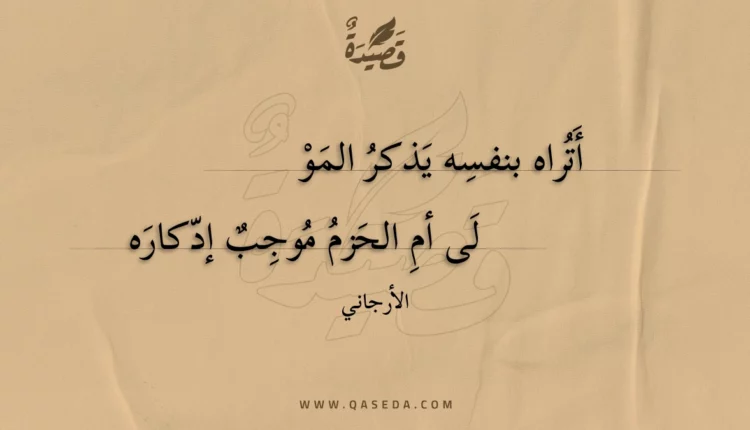 قَصِيْدَةٌ
أَتُراه بنفسِه يَذكرُ المَوْ
لَى أمِ الحَزمُ مُوجِبٌ إدّكارَه
الأرجاني
WWW.QASEDA.COM